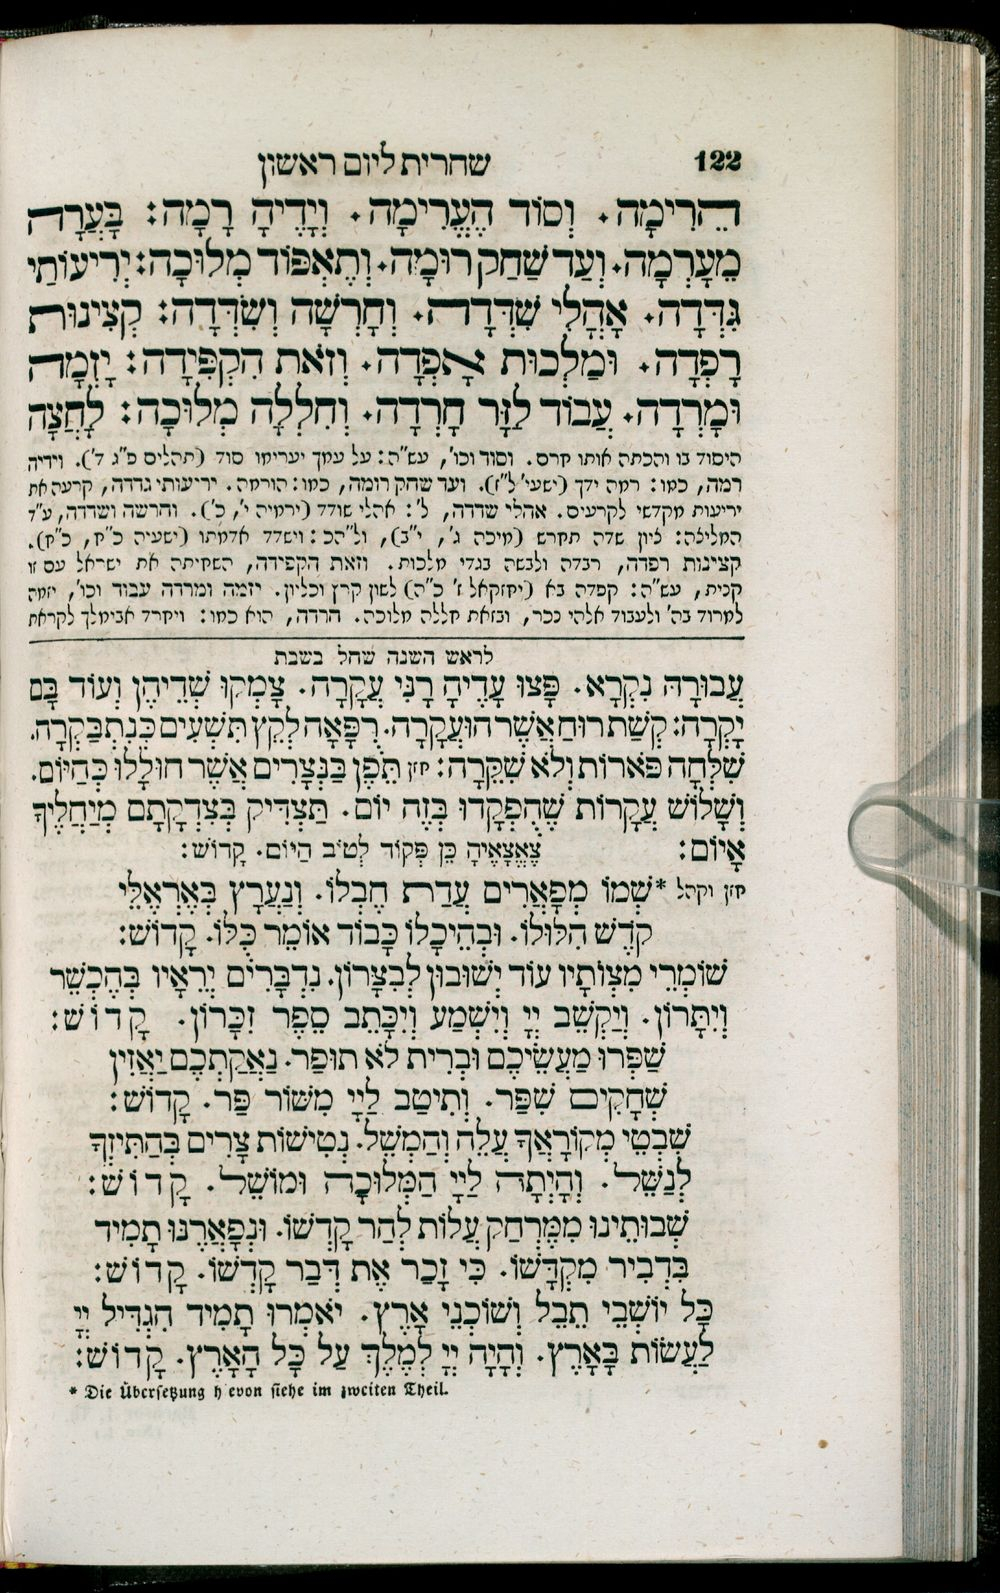 122
שחרית ליום ראשון
הֵרִימָה. וְסוֹד הֶעֱרִימָה. וְיָדֶיהָ רָמָה: בָּעֲרָה
מֵעָרְמָה. וְעַד שַׁחַק רוּמָהּ. וְתֶאְפּוֹד מְלוּכָה: יְרִיעוֹתַי
גִּדְּדָה. אָהֳלִי שִׁדְּדָה. וְחָרְשָׁה וְשִׂדְּדָה: קְצִינוּת
רָפְדָה. וּמַלְכוּת אָפְדָה. וְזֹאת הִקְפִּידָה: יָזְמָה
וּמָרְדָה. עֲבוֹד לַזָּר חָרְדָה. וְחִלְּלָה מְלוּכָה: לָחֲצָה
היסוד בו והכתה אותו חרם. וסוד וכו', עש"ה: על עמך יערימו סוד (תהלים פ"ג ד'). וידיה
רמה, כמו: רמה ידך (ישעי' ל"ז). ועד שחק רומה, כמו: הורמה. יריעותי גדדה, קרעה את
יריעות מקדשי לקרעים. אהלי שדדה, ל': אהלי שודד (ירמיה י', כ'). וחרשה ושדדה, ע"ד
המליצה: ציון שדה תחרש (מיכה ג', י"ב), ול"הכ: וישדד אדמתו (ישעיה כ"ח, כ"ח).
קצינות רפדה, רבדה ולבשה בגדי מלכות. וזאת הקפידה, השחיתה את ישראל עם זו
קנית, עש"ה: קפדה בא (יחזקאל ז' כ"ה) לשון קרץ וכליון. יזמה ומרדה עבוד וכו', יזמה
למרוד בה' ולעבוד אלהי נכר, ובזאת חללה מלוכה. חרדה, הוא כמו: ויחרד אבימלך לקראת
לראש השנה שחל בשבת
עֲבוּרָהּ נִקְרָא. פָּצוּ עָדֶיהָ רָנִּי עֲקָרָה. צָמְקוּ שָׁדֶיהָ וְעוֹד בָּם
יָקְרָה: קְשַׁת רוּחַ אֲשֶׁר הוּעֲקָרָה. רִפָּאָהּ לְקֵץ תִּשְׁעִים כְּנִתְבַּקְּרָה.
שִׁלְּחָה פֹּארוֹת וְלֹא שִׁקֵּרָה: חזן תֵּפֶן בַּנְּצָרִים אֲשֶׁר חוּלָּלוּ כְּהַיּוֹם.
וְשָׁלוֹשׁ עֲקָרוֹת שֶׁהֻפְקָדוּ בְּזֶה יוֹם. תַּצְדִּיק בְּצִדְקָתָם מְיַחֲלֶיךָ
אָיוֹם: צֶאֱצָאֶיהָ כֵּן פְּקוֹד לְטוֹב הַיּוֹם. קָדוֹשׁ:
חזן וקהל *שְׁמוֹ מְפָאֲרִים עֲדַת חֶבְלוֹ. וְנַעֲרָץ בְּאֶרְאֶלֵּי
קֹדֶשׁ הִלּוּלוֹ. וּבְהֵיכָלוֹ כָּבוֹד אוֹמֵר כֻּלּוֹ. קָדוֹשׁ:
שׁוֹמְרֵי מִצְוֹתָיו עוֹד יְשׁוּבוּן לְבִצָּרוֹן. נִדְבָּרִים יְרֵאָיו בְּהֶכְשֵׁר
וְיִתְּרוֹן. וְיַקְשֵׁב יְיָ וְיִשְׁמַע וְיִכָּתֵב סֵפֶר זִכָּרוֹן. קָדוֹשׁ:
שַׁפְּרוּ מַעֲשֵׂיכֶם וּבְרִית לֹא תוּפַר. נַאֲקַתְכֶם יַאֲזִין
שְׁחָקִים שִׁפַּר. וְתִיטַב לַייָ מִשּׁוֹר פַּר. קָדוֹשׁ:
שִׁבְטֵי מְקוֹרָאֲךָ עֲלֵה וְהַמְשֵׁל. נְטִישׁוֹת צָרִים בְּהַתִּיזְךָ
לְנַשֵּׁל. וְהָיְתָה לַייָ הַמְּלוּכָה וּמוֹשֵׁל. קָדוֹשׁ:
שְׁבוּתֵינוּ מִמֶּרְחַק עֲלוֹת לְהַר קָדְשׁוֹ. וּנְפָאֲרֶנּוּ תָמִיד
בִּדְבִיר מִקְדָּשׁוֹ. כִּי זָכַר אֶת דְּבַר קָדְשׁוֹ. קָדוֹשׁ:
כָּל יוֹשְׁבֵי תֵבֵל וְשׁוֹכְנֵי אָרֶץ. יֹאמְרוּ תָמִיד הִגְדִּיל יְיָ
לַעֲשׂוֹת בָּאָרֶץ. וְהָיָה יְיָ לְמֶלֶךְ עַל כָּל הָאָרֶץ. קָדוֹשׁ:
* Die Übersetzung hievon siehe im zweiten Theil.